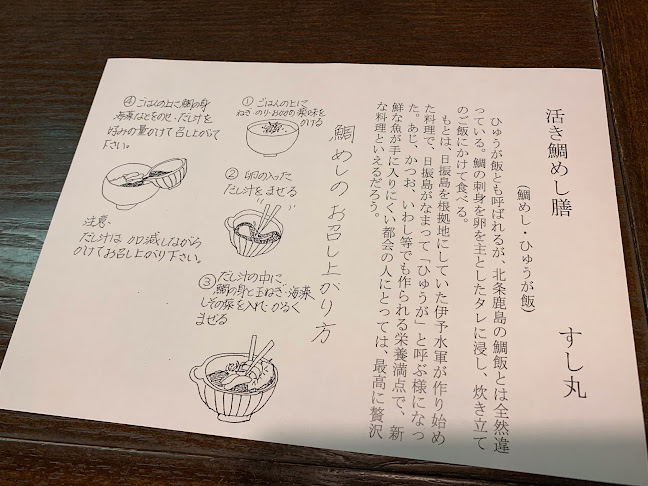 活き鯛めし膳
すし丸
(鯛めし・ひゅうが飯)
ひゅうが飯とも呼ばれるが、北条鹿島の鯛飯とは全然違
っている。鯛の刺身を卵を主としたタレに浸し、炊き立て
のご飯にかけて食べる。
もとは、日振島を根拠地にしていた伊予水軍が作り始め
た料理で、日振島がなまって「ひゅうが」と呼ぶ様になっ
た。あじ、かつお、いわし等でも作られる栄養満点で、新
鮮な魚が手に入りにくい都会の人にとっては、最高に贅沢
な料理といえるだろう。
鯛めしのお召し上がり方
① ごはんの上に
ねぎ・のり・おかかの薬味を
かける
② 卵の入った
だし汁をまぜる
③ だし汁の中に
鯛の身と玉ねぎ・海藻
しその葉を入れ かるく
まぜる
④ ごはんの上に鯛の身
海藻などをのせ、だし汁を
好みの量かけて召し上がって
下さい。
注意、
だし汁は 加減しながら
かけてお召し上がり下さい。